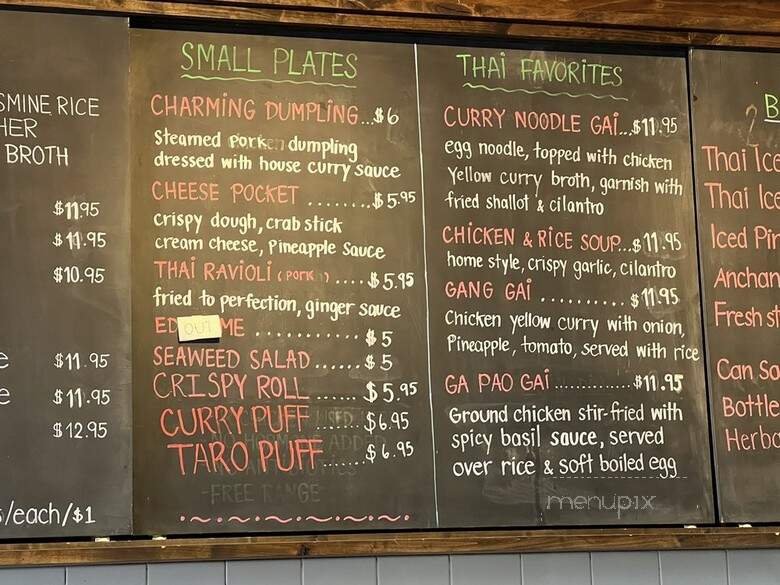 SMINE RICE
HER
BROTH
$11.95
$11.95
$10.95
$11.95
$11.95
$12.95
s/each/$1
SMALL PLATES
CHARMING DUMPLING...$6
Steamed pork dumpling
dressed with house curry sauce
CHEESE POCKET ........$5.95
crispy dough, crab stick
cream cheese, Pineapple sauce
THAI RAVIOLI (PORK) .....$5.95
fried to perfection, ginger sauce
ED OUT ME ..........$5
SEAWEED SALAD......$5
CRISPY ROLL......$5.95
CURRY PUFF......$6.95
TARO PUFF......$6.95
-FREE RANGE
THAI FAVORITES
CURRY NOODLE GAI...$11.95
egg noodle, topped with chicken
Yellow curry broth, garnish with
fried shallot & cilantro
CHICKEN & RICE SOUP...$11.95
home style, crispy garlic, cilantro
GANG GAI ..........$11.95
Chicken yellow curry with onion,
Pineapple, tomato, served with rice
GA PAO GAI.............$11.95
Ground chicken stir-fried with
spicy basil sauce, served
over rice & soft boiled egg
menupix
B
Thai Ice
Thai Ice
Iced Pin
Anchan
Fresh st
Can So
Bottle
Herba